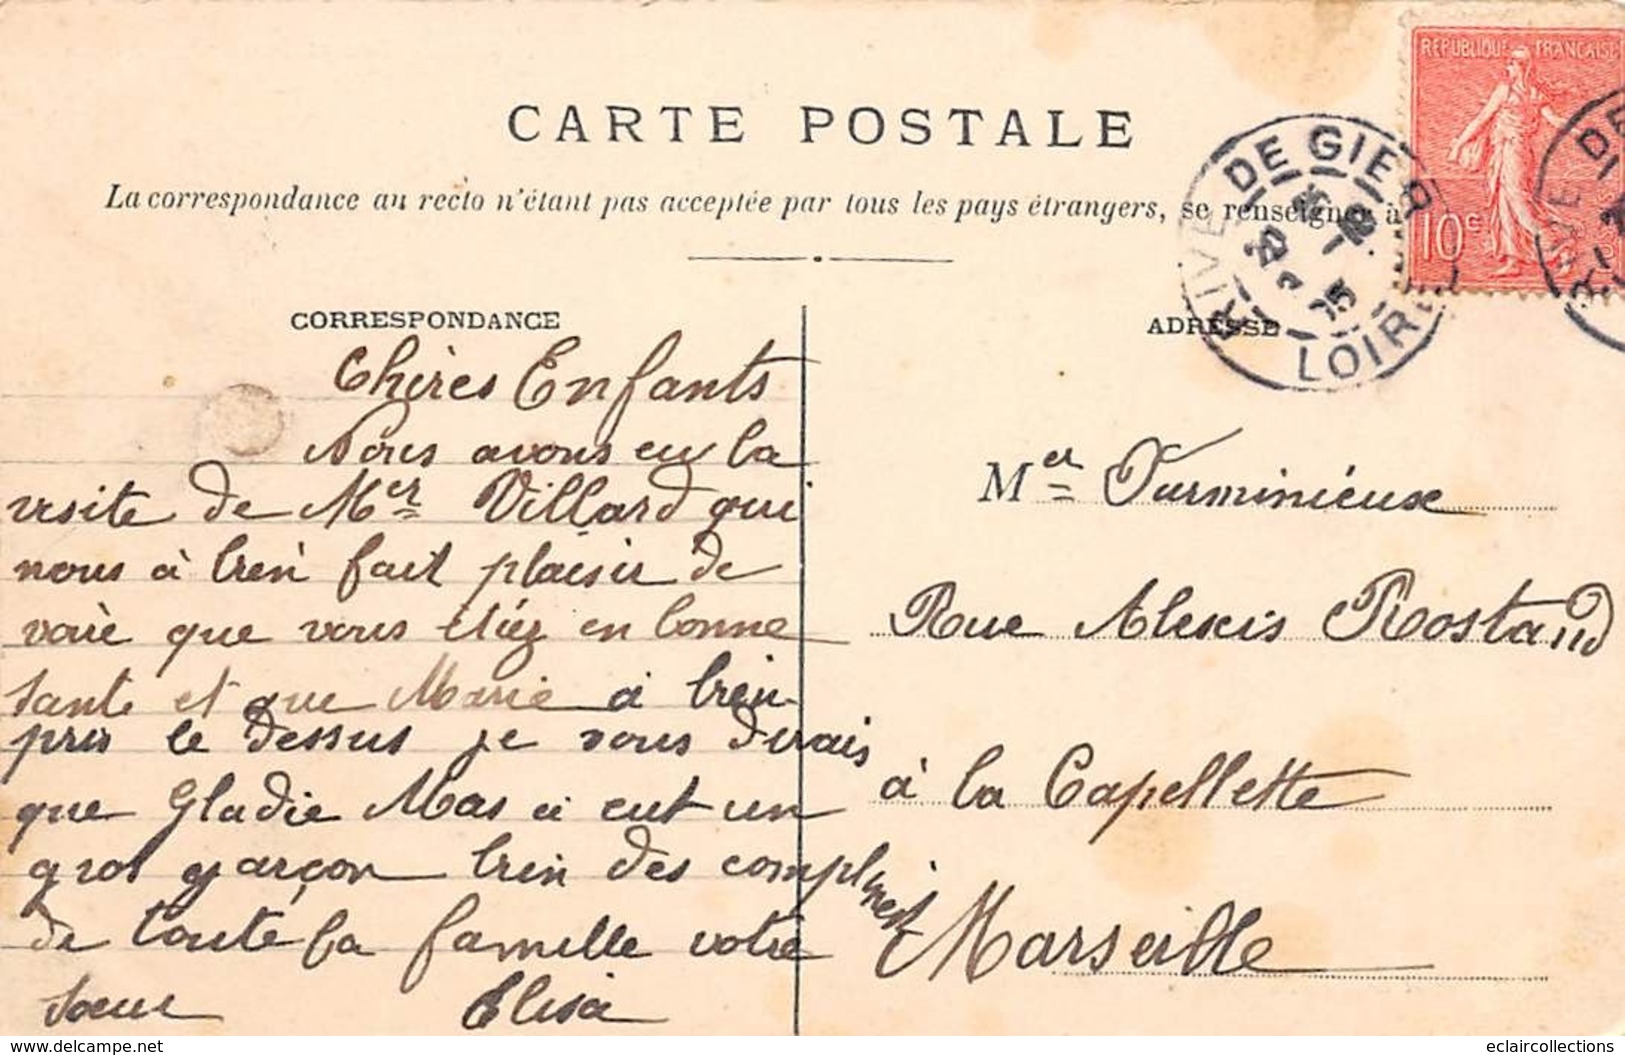 RÉPUBLIQUE FRANÇAISE
10c
CARTE POSTALE
RIVE DE GIER
LOIRE
La correspondance au recto n'étant pas acceptée par tous les pays étrangers, se renseigner à
CORRESPONDANCE
Chères Enfants
Nous avons eu la
visite de Mer Villard qui
nous à bien fait plaisir de
voire que vous étiez en bonne
sante et que Marie à bien
pris le dessus je vous dirais
que Gladie Mas à eut un
gros garçon bien des compliment
de toute la famille votre
sœur Elisa
ADRESSE
Mer Turminieux
Rue Alexis Rostand
à la Capellette
Marseille
https://www.delcampe.net
eclaircollections